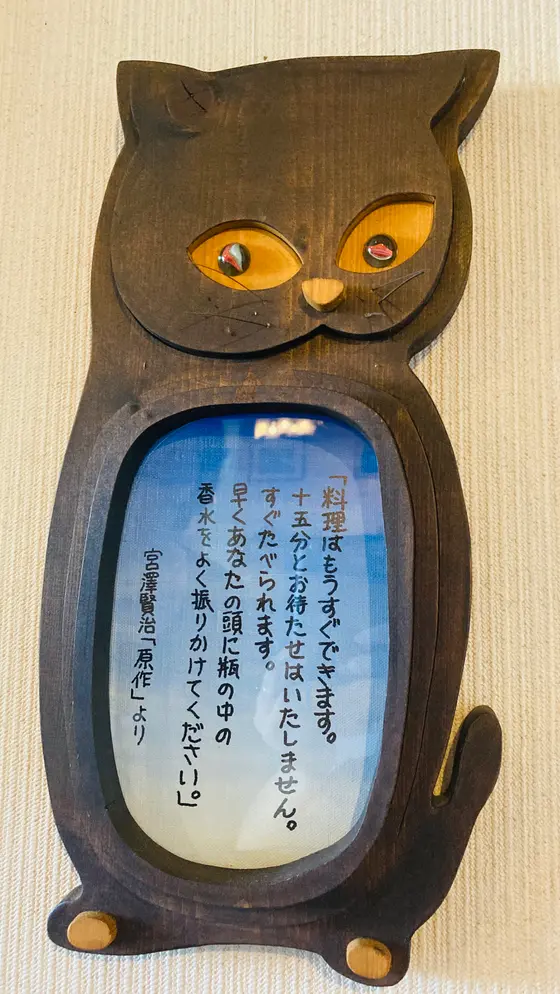 「料理はもうすぐできます。
十五分とお待たせはいたしません。
すぐたべられます。
早くあなたの頭に瓶の中の
香水をよく振りかけてください。」
宮澤賢治「原作」より